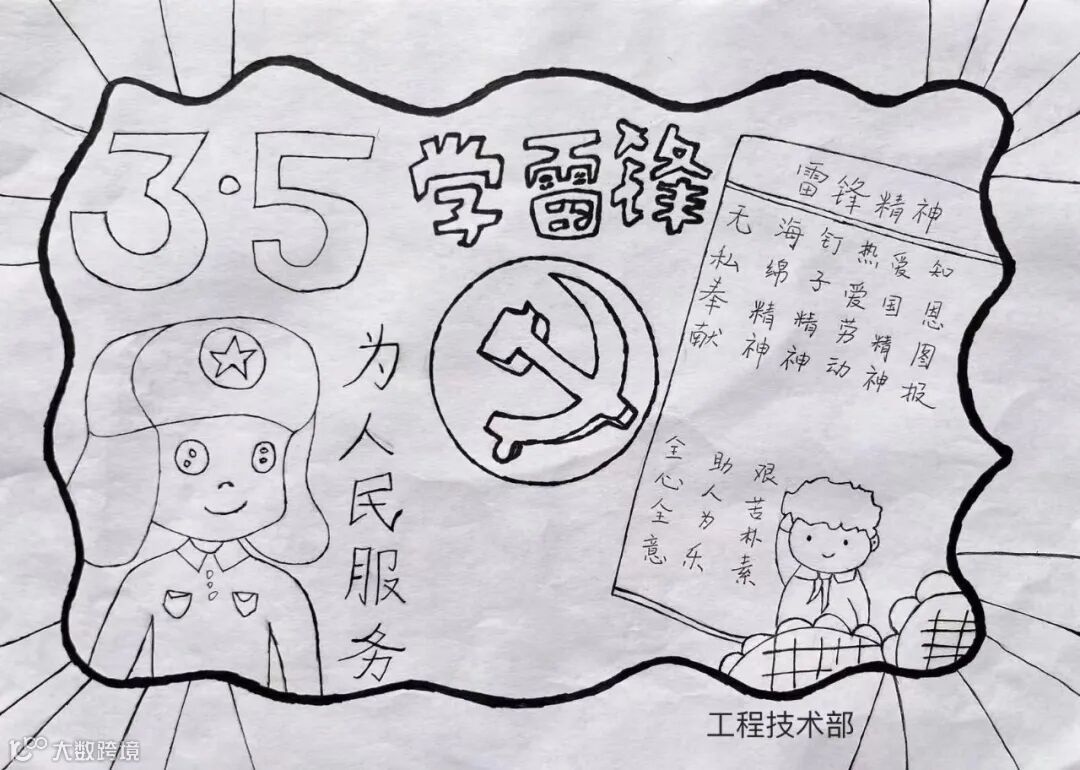 3·5
学雷锋
为人民服务
雷锋精神
无私奉献
海绵精神
钉子精神
热爱劳动
爱国精神
知恩图报
全心全意
助人为乐
艰苦朴素
工程技术部
大数跨境